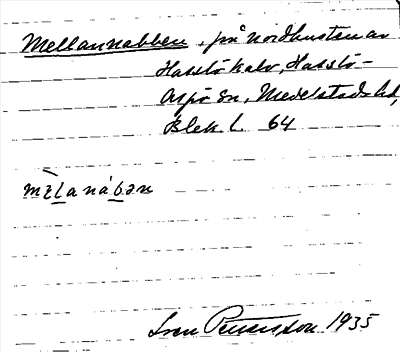 Mellannabben, på nordkusten av
Hasslö kalv, Hasslö-
Aspö sn, Medelstads hd,
Blek. l. 64
mèlanábən
Sven Pettersson 1935